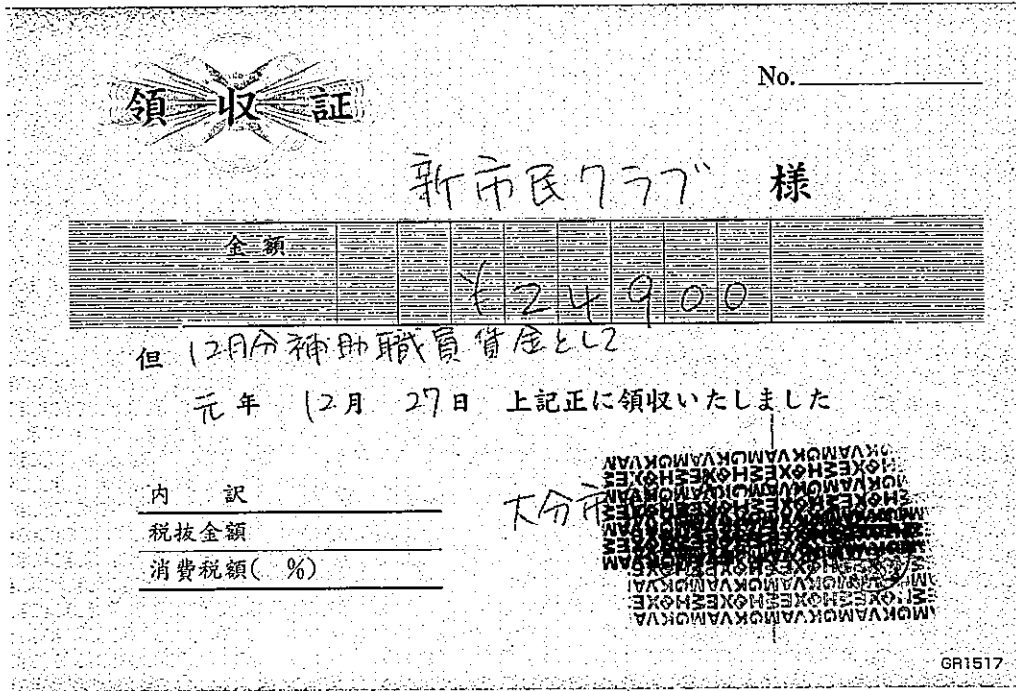 No.
領収証
新市民クラブ 様
金額 ¥24900
但 12月分補助職員賃金として
元年 12月 27日 上記正に領収いたしました
内 訳
税抜金額
消費税額( %)
大分市
GR1517